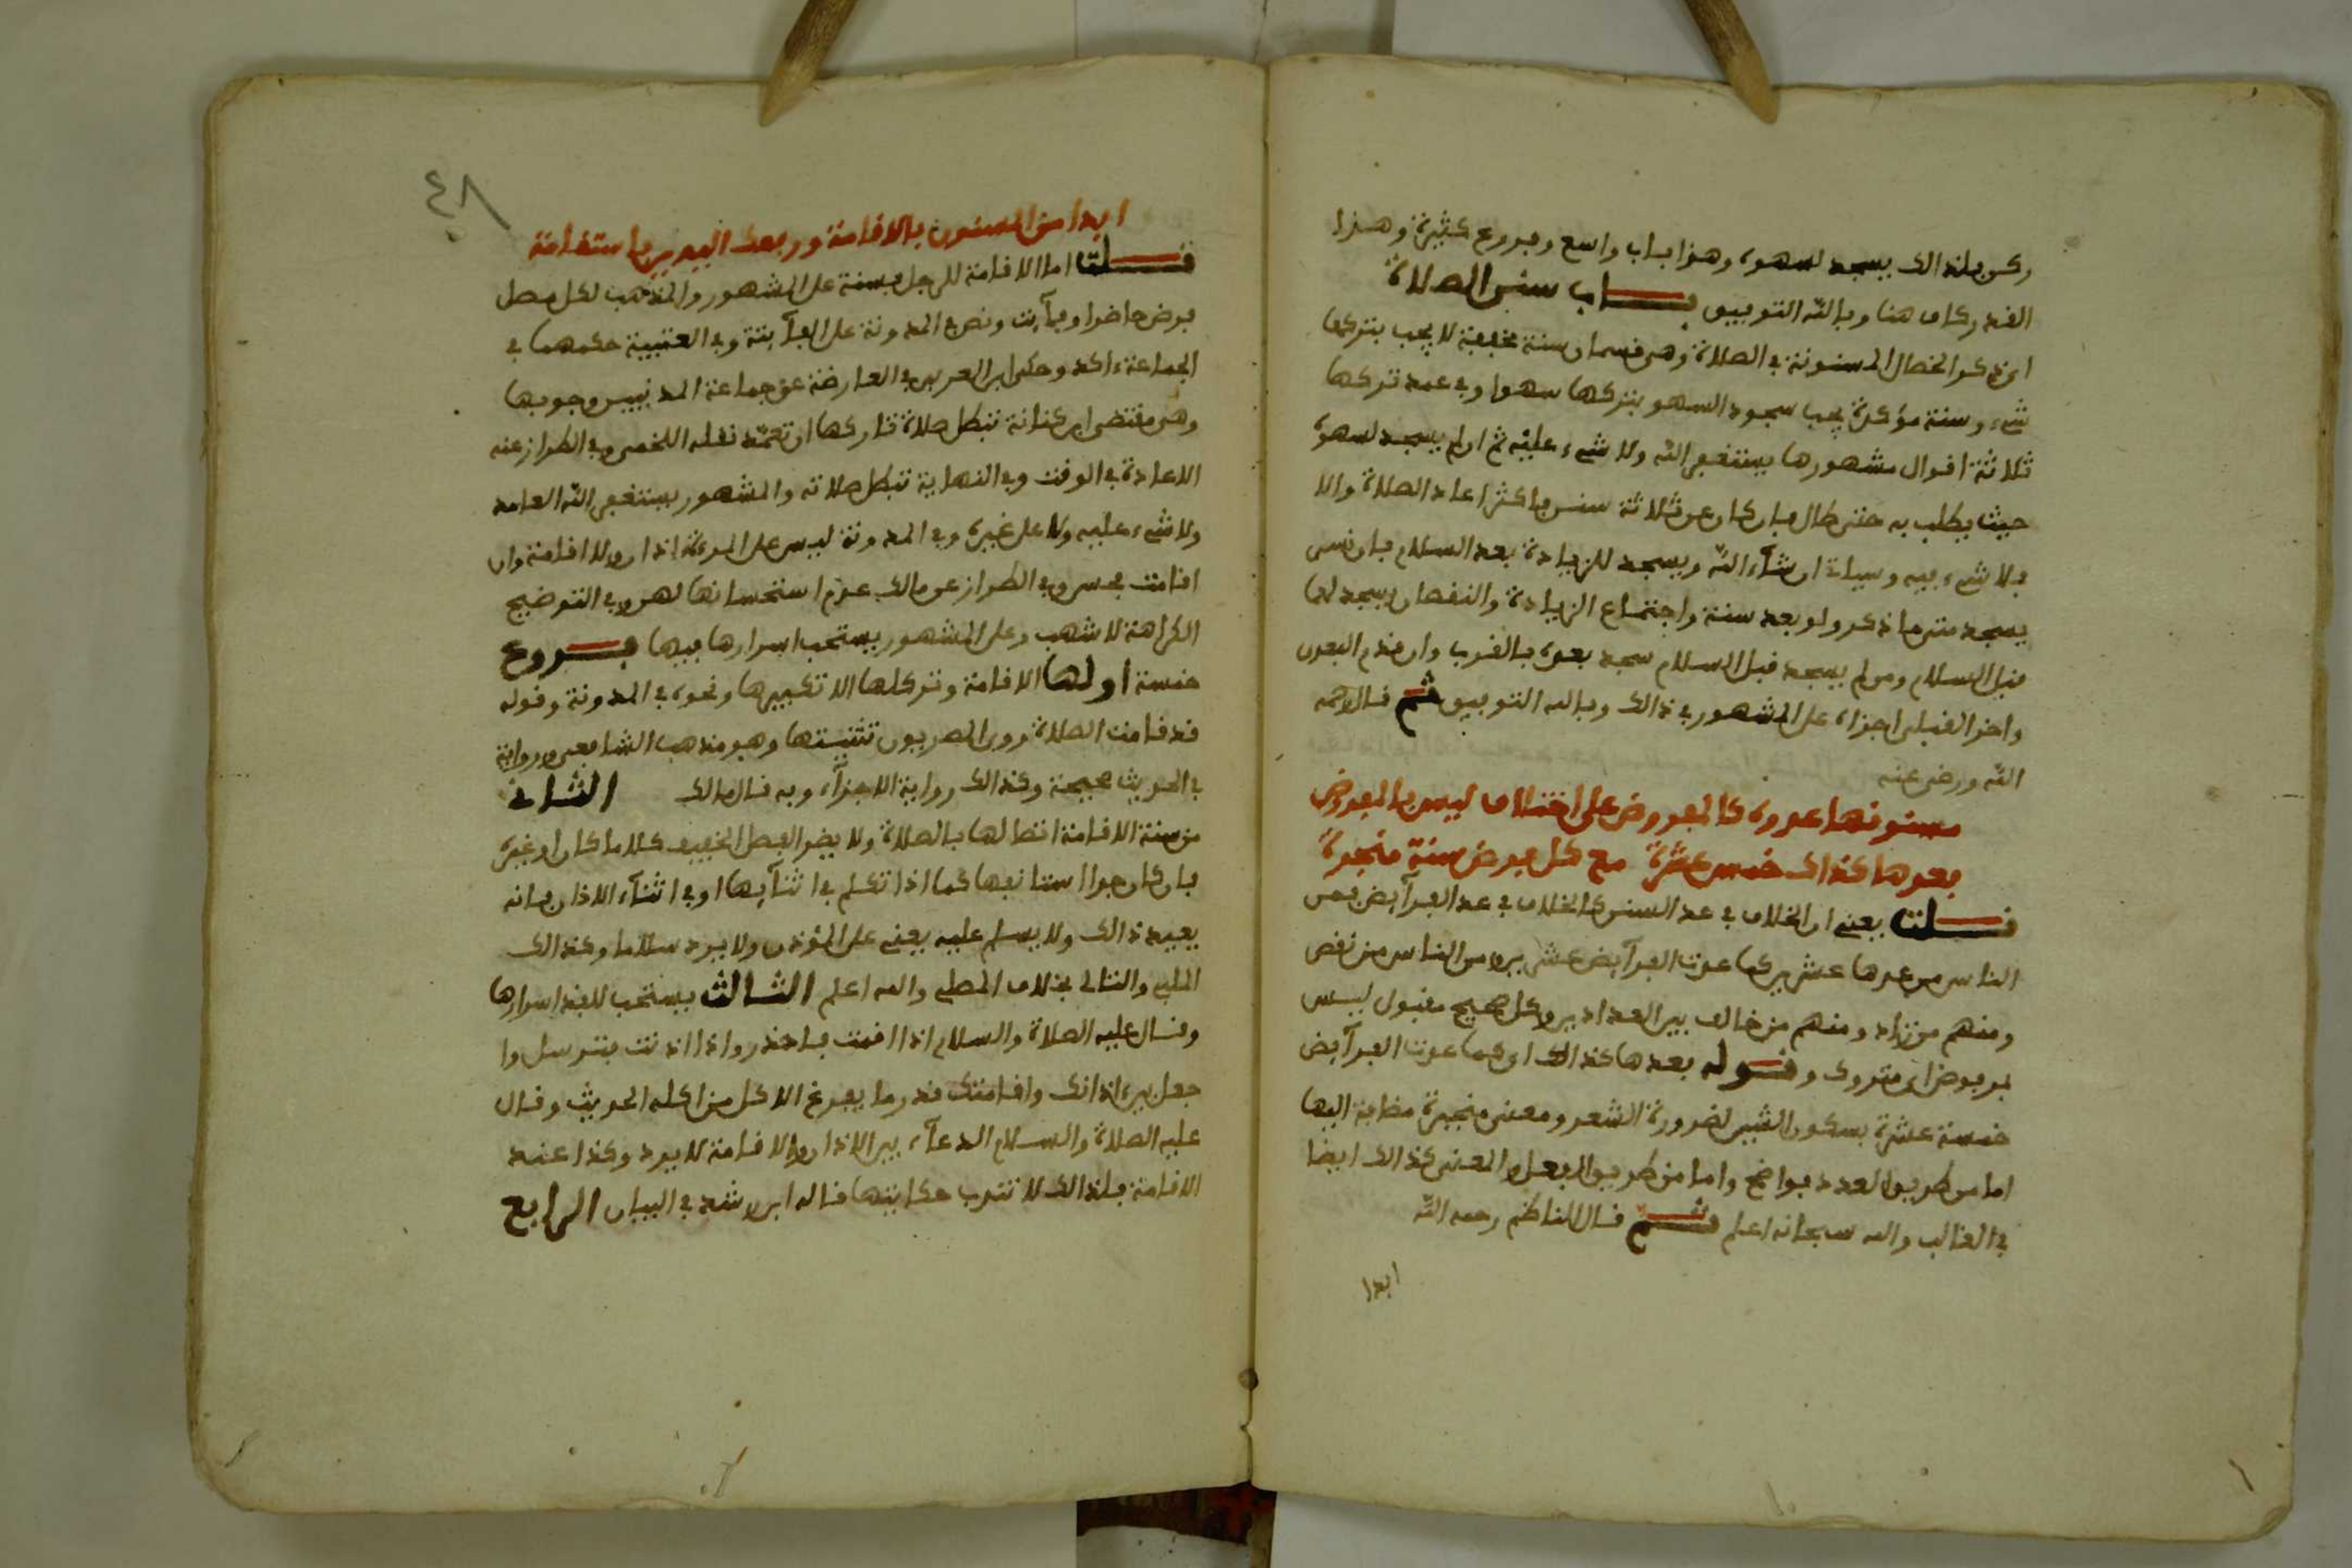 ركن فلذالك يسجد لسهوه وهذا باب واسع وفروع كثيرة وهذا
القدر كاف هنا وبالله التوفيق باب سنن الصلاة
اي ذكر الخصال المسنونة في الصلاة وهي قسمان سنة خفيفة لا يجب بتركها
شيء وسنة مؤكدة يجب سجود السهو بتركها سهوا وفي عمد تركها
ثلاثة اقوال مشهورها يستغفر الله ولا شيء عليه ثم ان لم يسجد لسهوه
حيث يطلب به حتى طال فان كان عن ثلاثة سنن فاكثر اعاد الصلاة والا
فلا شيء فيه وسياتي ان شاء الله ويسجد للزيادة بعد السلام فان نسي
يسجد متى ما ذكر ولو بعد سنة واجتماع الزيادة والنقصان يسجد لهما
قبل السلام ومن لم يسجد قبل السلام سجد بعده بالقرب وان قدم البعدي
واخر القبلي اجزاه على المشهور في ذالك وبالله التوفيق ثم قال رحمه
الله ورضي عنه
مسنونها عدوه كالمفروض على اختلاف ليس بالمفروض
فعدها كذاك خمس عشرة مع كل فرض سنة منجرة
قلت يعني ان الخلاف في عد السنن كالخلاف في عد الفرآيض فمن
الناس من عدها عشرين كما عدت الفرآيض عشرين ومن الناس من نقص
ومنهم من زاد ومنهم من خالف بين العدادين وكل صحيح مقبول ليس
بمرفوض اي متروك وقوله بعدها كذالك اي كما عدت الفرآيض
خمسة عشرة بسكون الشين لضرورة الشعر ومعنى منجرة مضافة اليها
اما من طريق العدد فواضح واما من طريق الفعل والمعنى كذالك ايضا
في الغالب والله سبحانه اعلم ثم قال الناظم رحمه الله
ابدا
٤٨
ابدا من المسنون بالاقامة ورفعك اليدين باستقامة
قلت اما الاقامة للرجل فسنة على المشهور والمذهب لكل مصل
فرض حاضرا وفآيت ونص في المدونة على الفآيتة وفي العتبية حكمهما في
الجماعة ءاكد وحكى ابن العربي في العارضة عن جماعة المدنيين وجوبها
وهي مقتضى ابن كنانة تبطل صلاة تاركها ان تعمد نقله اللخمي وفي الطراز عنه
الاعادة في الوقت وفي النهاية تبطل صلاته والمشهور يستغفر الله العامد
ولا شيء عليه ولا على غيره وفي المدونة ليس على المرءة اذان ولا اقامة وان
اقامت فحسن وفي الطراز عن مالك عدم استحسانها لهن وفي التوضيح
الكراهة لاشهب وعلى المشهور يستحب اسرارها فيها فروع
خمسة اولها الاقامة وتر كلها الا تكبيرها ونحوه في المدونة وقوله
قد قامت الصلاة روى المصريون تثنيتها وهو مذهب الشافعي ورواية
في الحديث صحيحة وكذالك رواية الاجزآء وبه قال مالك الثاني
من سنة الاقامة اتصالها بالصلاة ولا يضر الفصل الخفيف كلاما كان او غيره
فان كان جدا استانفها كما اذا تكلم في اثنآيها او في اثنآء الاذان فانه
يعيد ذالك ولا يسلم عليه يعني على المؤذن ولا يرد سلاما وكذالك
الملبي والتالي بخلاف المصلي والله اعلم الثالث يستحب للفذ اسرارها
وقال عليه الصلاة والسلام اذا اقمت فاحذر واذا اذنت فترسل وا
جعل بين اذانك واقامتك قدر ما يفرغ الاكل من اكله الحديث وقال
عليه الصلاة والسلام الدعآء بين الاذان والاقامة لا يرد وكذا عند
الاقامة فلذالك لا تندب حكايتها قاله ابن رشد في البيان الرابع